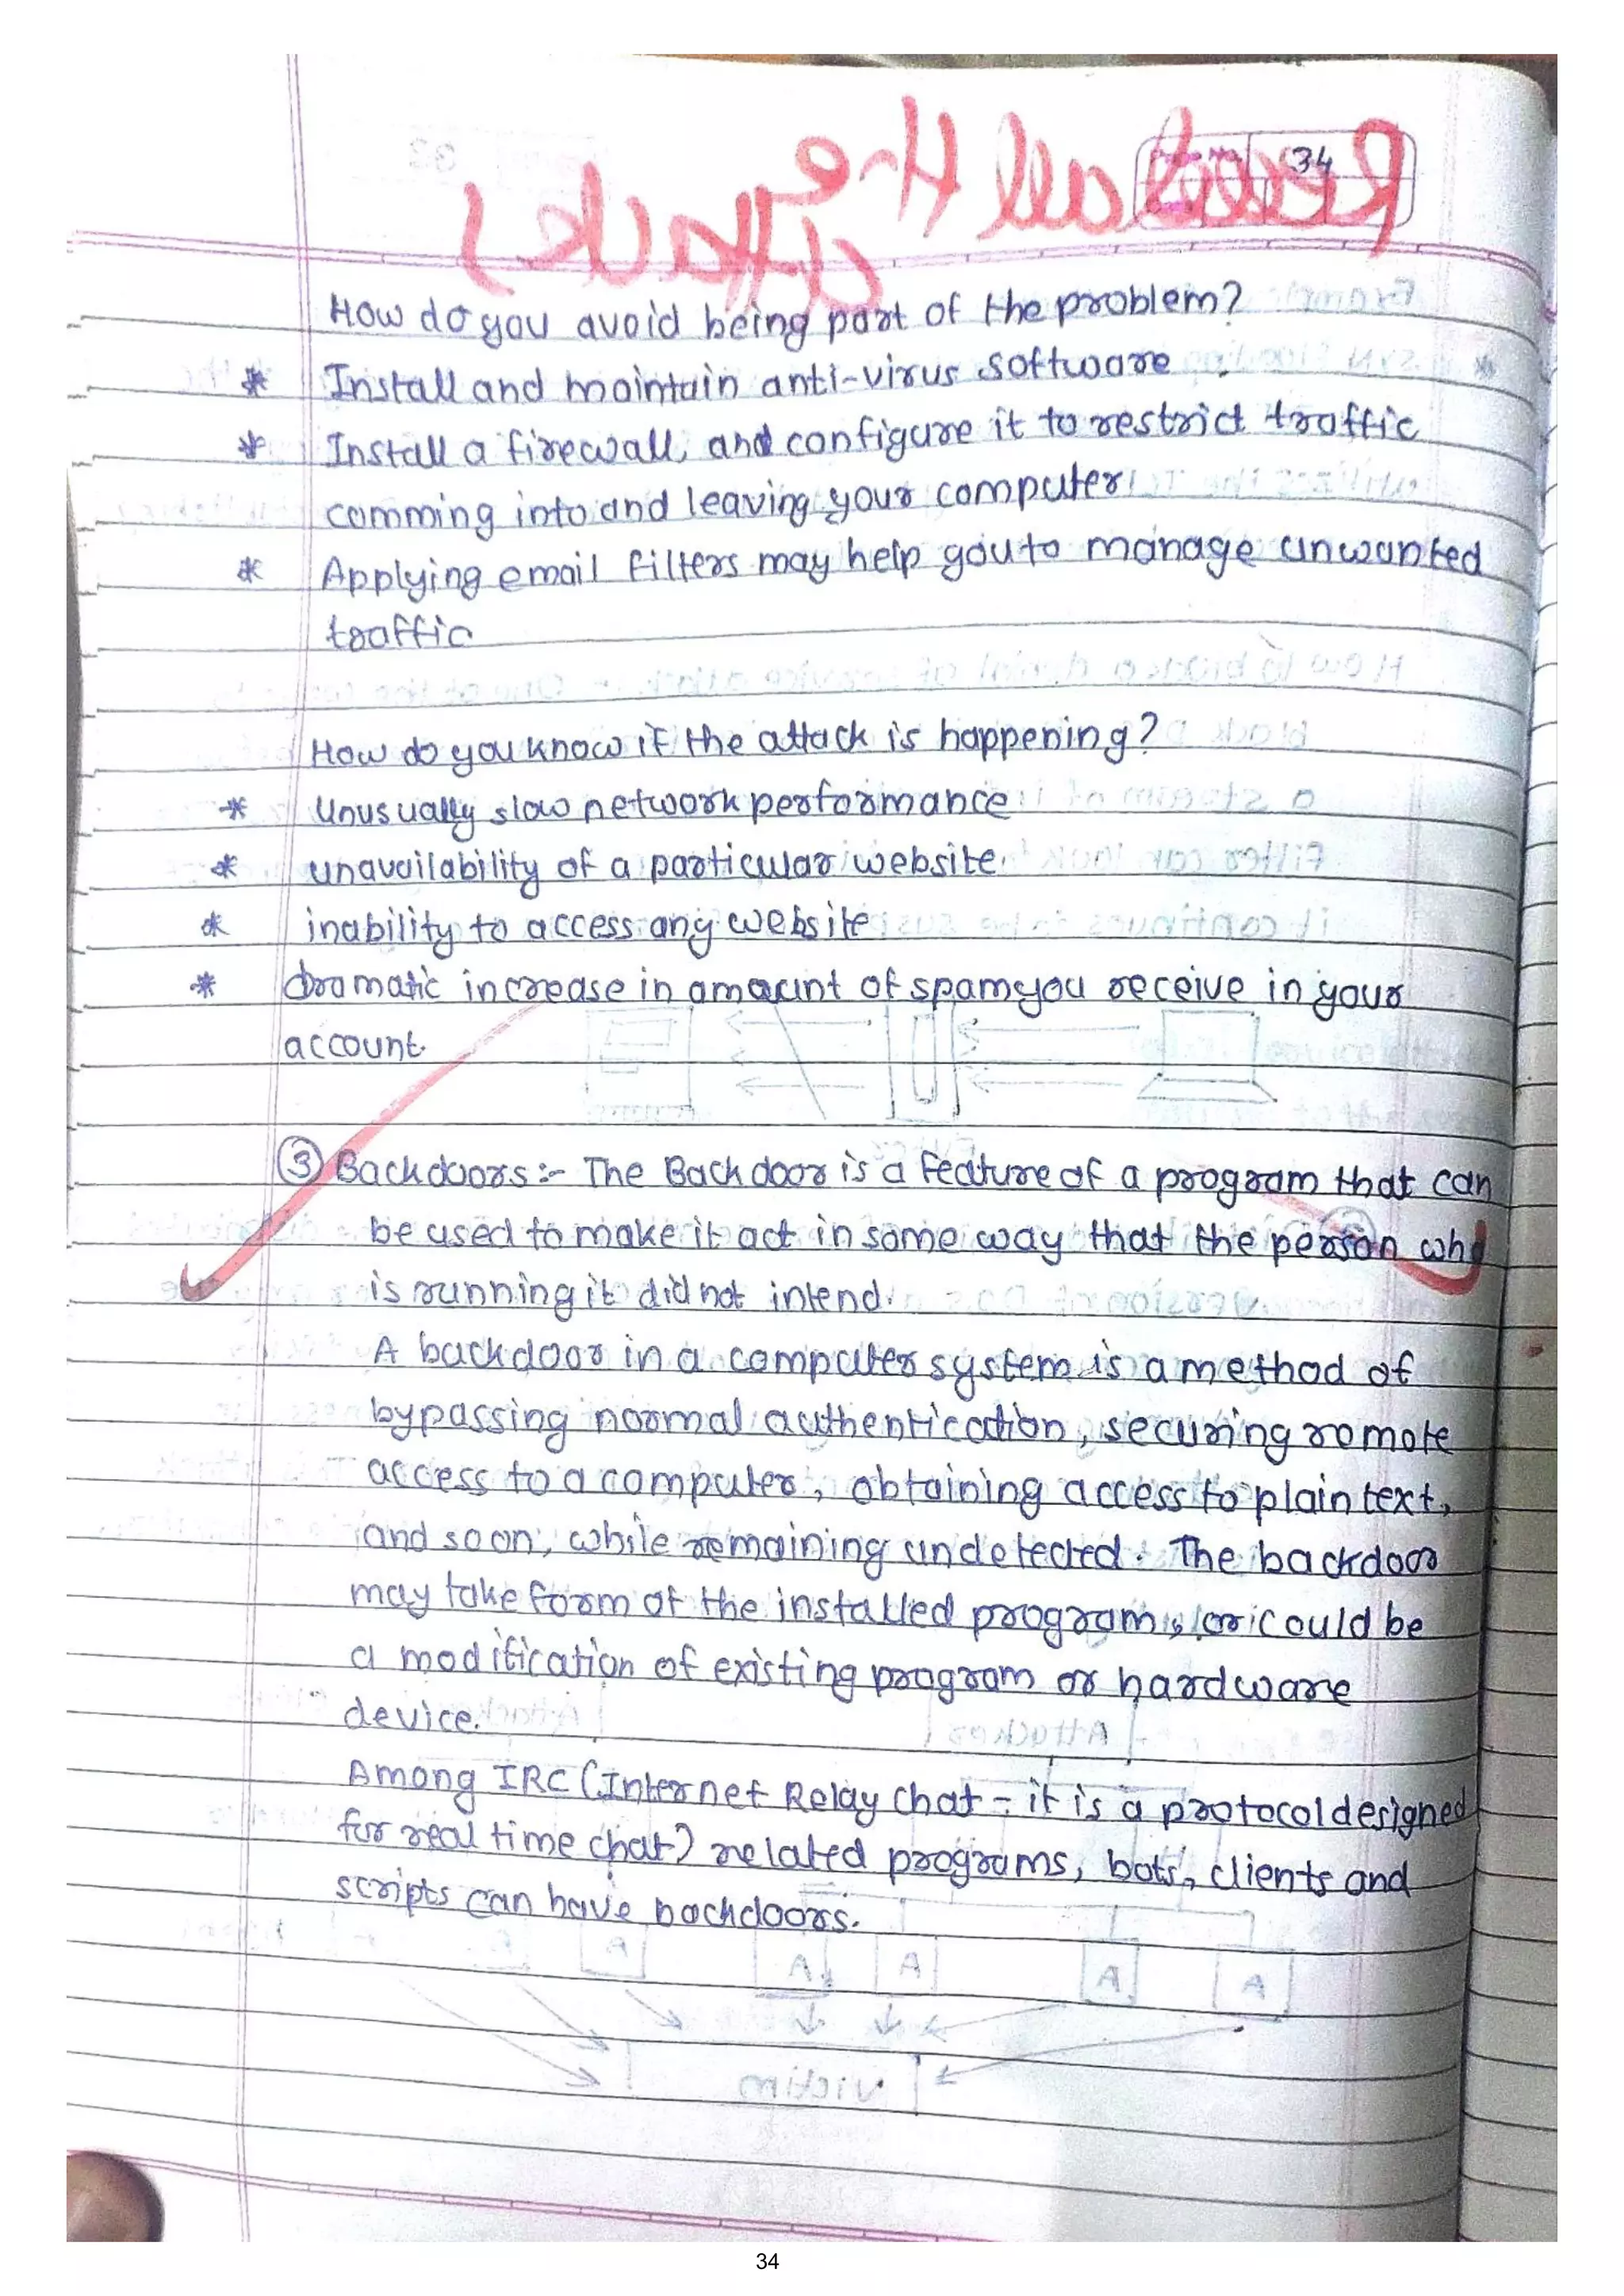 34
How do you avoid being part of the problem?
* Install and maintain anti-virus software.
* Install a firewall, and configure it to restrict traffic
comming into and leaving your computer
* Applying email filters may help you to manage unwanted
traffic
How do you know if the attack is happening?
* Unusually slow network performance
* unavailability of a particular website
* inability to access any website
* dramatic increase in amount of spam you receive in your
account.
③ Backdoors :- The Backdoor is a feature of a program that can
be used to make it act in some way that the person who
is running it did not intend.
A backdoor in a computer system is a method of
bypassing normal authentication, securing remote
access to a computer, obtaining access to plain text,
and so on, while remaining undetected. The backdoor
may take form of the installed program, or could be
a modification of existing program or hardware
device.
Among IRC (Internet Relay Chat - it is a protocol designed
for real time chat) related programs, bots, clients and
scripts can have backdoors.
34